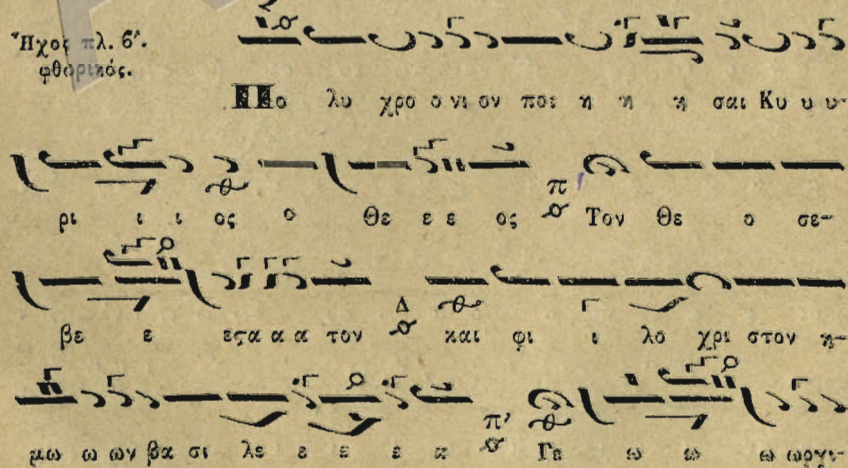 Ἦχος πλ. β'.
φθορικός.
Πο λυ χρο ο νι ον ποι η η η σαι Κυ υ υ-
ρι ι ι ος ο Θε ε ε ος π Τον Θε ο σε-
βε ε εϛα α α τον Δ και φι ι λο χρι στον η-
μω ω ων βα σι λε ε ε ε α π' Γε ω ω ω ωργι-